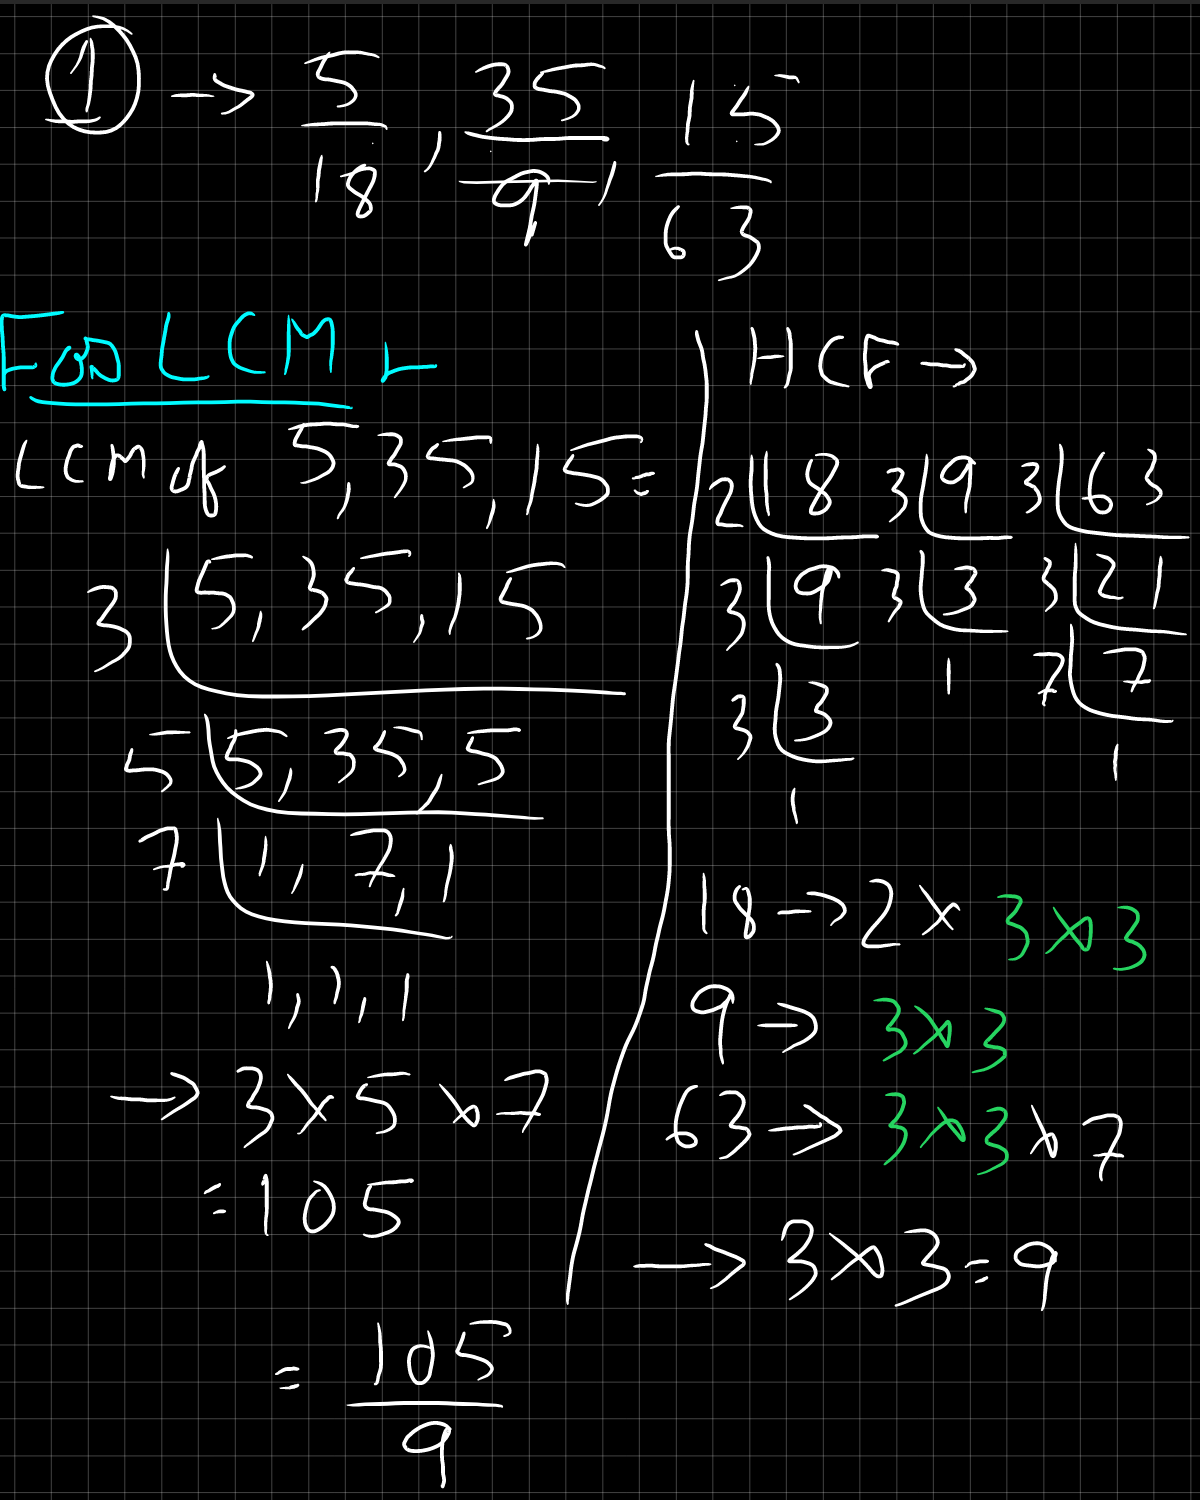 1 → 5/18 , 35/9 , 15/63
For LCM ⊢
LCM of 5,35,15 =
3 | 5,35,15
5 | 5,35,5
7 | 1,7,1
1,1,1
→ 3×5×7
= 105
HCF →
2 | 18 3 | 9 3 | 63
3 | 9 3 | 3 3 | 21
3 | 3 1 7 | 7
1 1
18 → 2 × 3×3
9 → 3×3
63 → 3×3×7
→ 3×3 = 9
= 105/9